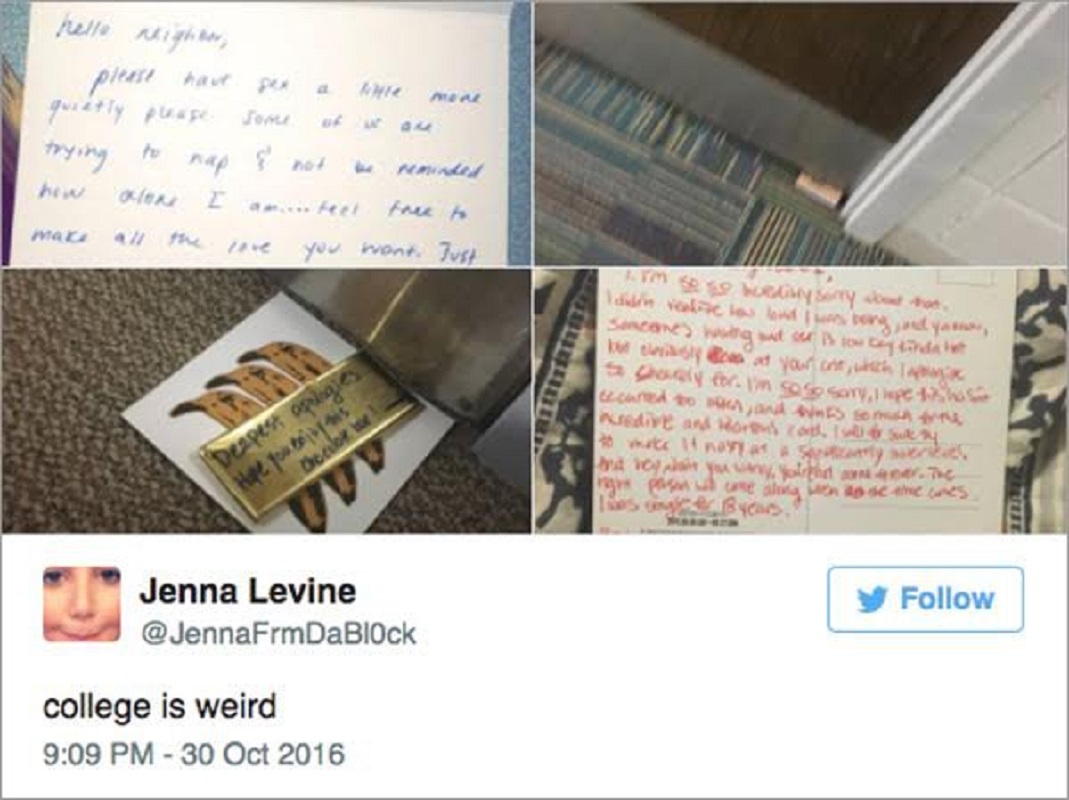 hello neighbor,
please have sex a little more
quietly please. Some of us are
trying to nap & not be reminded
how alone I am....feel free to
make all the love you want. Just
Deepest apologies
Hope you enjoy this
chocolate bar!
I'm so so incredibly sorry about that.
I didn't realize how loud I was being, and
someone's
but obviously at your one, which I apologize
so sincerely for. I'm so so sorry, I hope this hasn't
occurred too often, and thanks so much for the
incredible and card. I will be sure try
to make it not at a significantly level.
And hey, don't you worry, you're not alone forever. The
right person will come along when the time comes.
I was single for 18 years.
Jenna Levine
@JennaFrmDaBl0ck
Follow
college is weird
9:09 PM - 30 Oct 2016